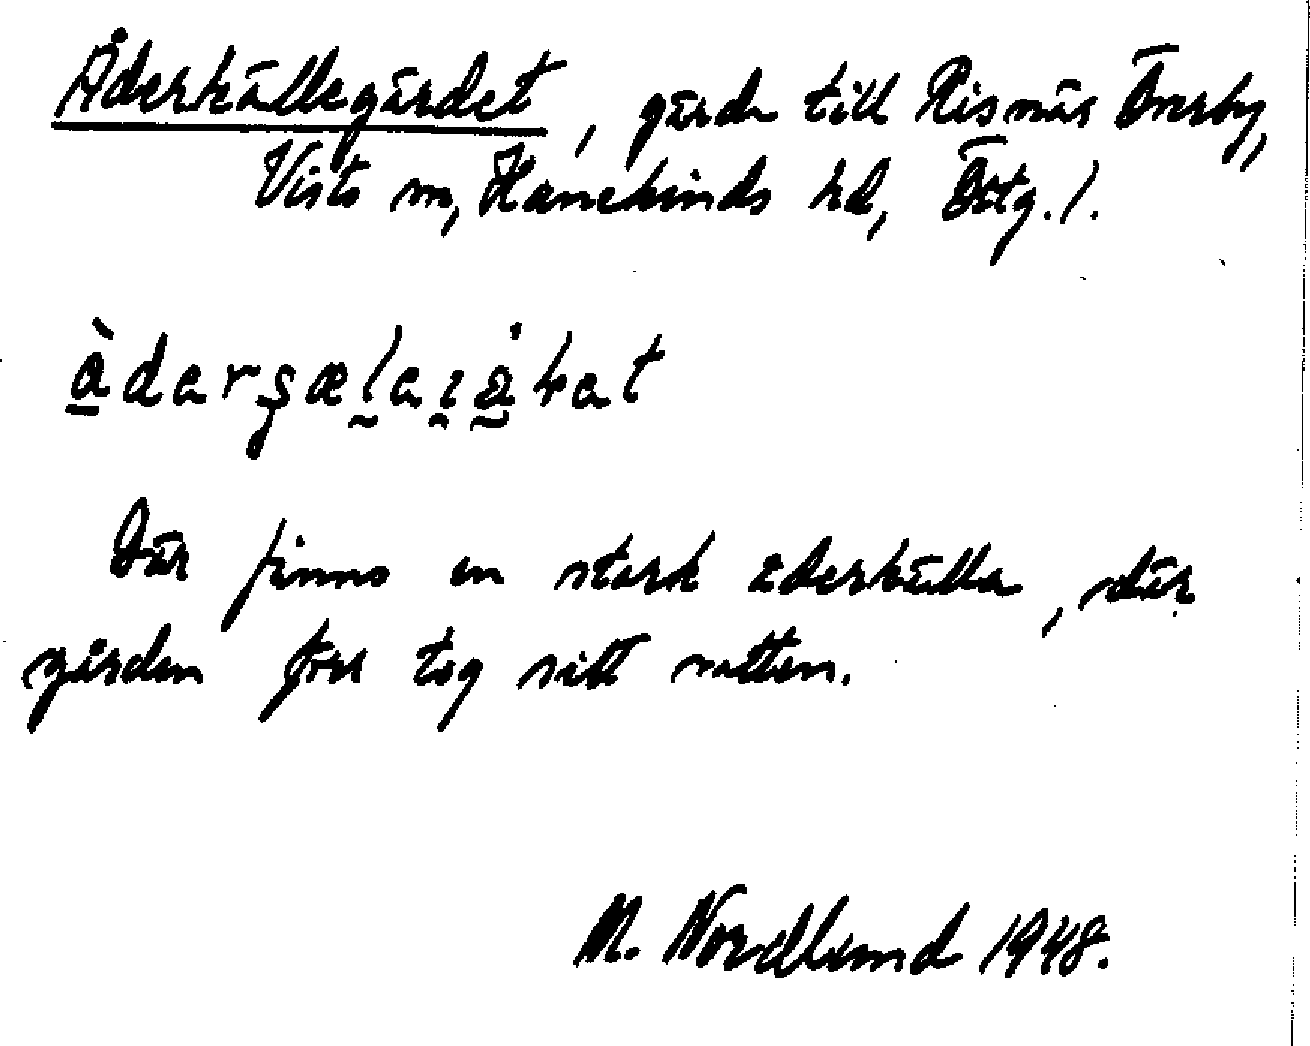 Åderkällegärdet, gärde till Risnäs Överby,
Vists sn, Hanekinds hd, Östg. l.
Där finns en stark åderkälla, där
gården förr tog sitt vatten.
M. Nordlund 1948.